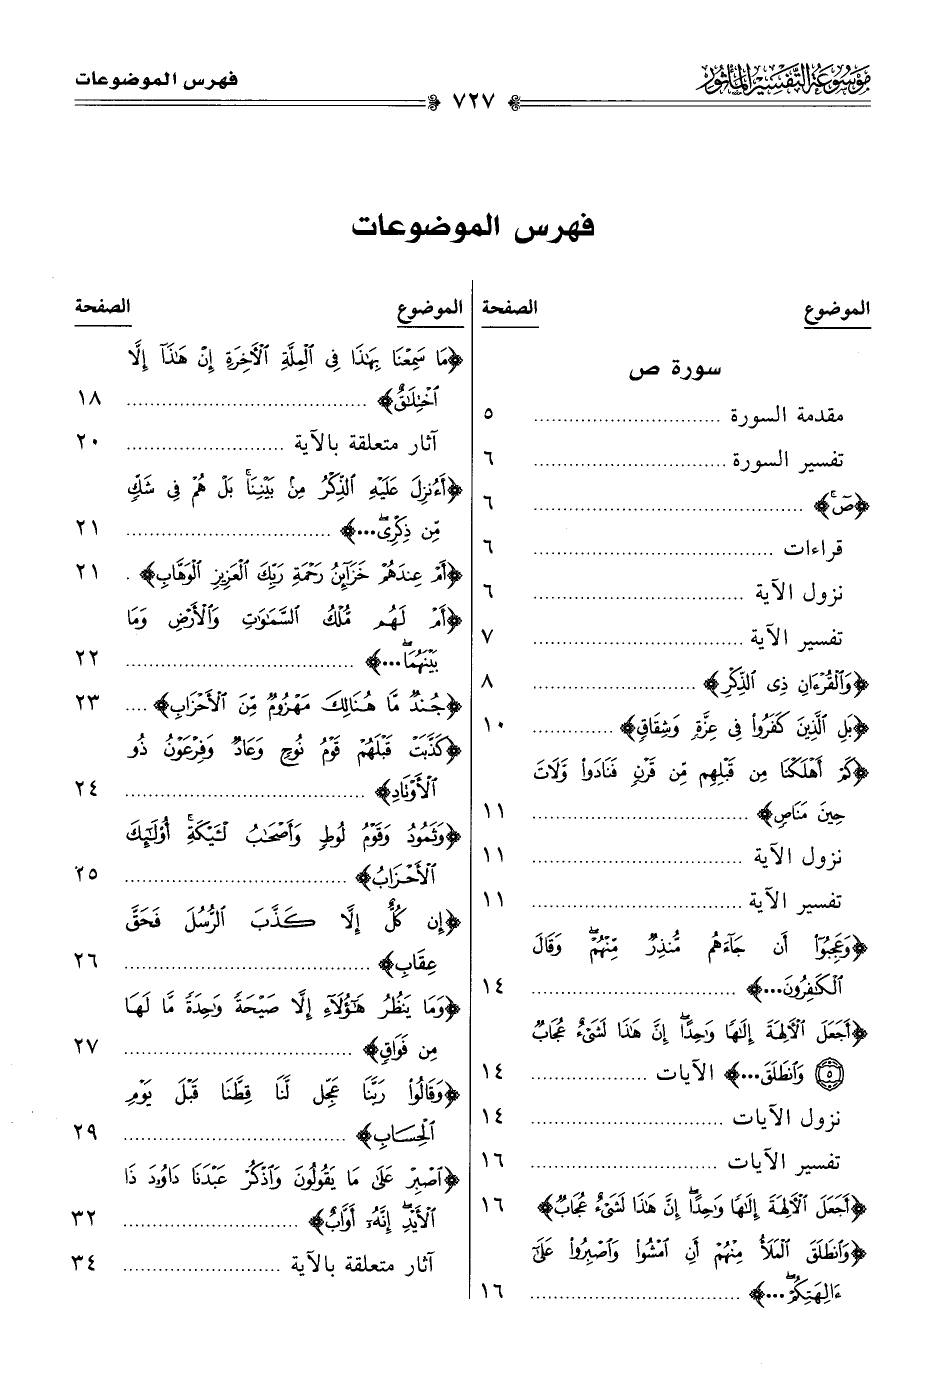 موسوعة التفسير المأثور
فهرس الموضوعات
٧٢٧
فهرس الموضوعات
الموضوع الصفحة
سورة ص
مقدمة السورة ................................ ٥
تفسير السورة ................................ ٦
﴿صٓۚ﴾ ................................ ٦
قراءات ................................ ٦
نزول الآية ................................ ٦
تفسير الآية ................................ ٧
﴿وَٱلْقُرْءَانِ ذِى ٱلذِّكْرِ﴾ ................................ ٨
﴿بَلِ ٱلَّذِينَ كَفَرُوا۟ فِى عِزَّةٍ وَشِقَاقٍ﴾ .............. ١٠
﴿كَمْ أَهْلَكْنَا مِن قَبْلِهِم مِّن قَرْنٍ فَنَادَوا۟ وَّلَاتَ
حِينَ مَنَاصٍ﴾ ................................ ١١
نزول الآية ................................ ١١
تفسير الآية ................................ ١١
﴿وَعَجِبُوٓا۟ أَن جَآءَهُم مُّنذِرٌ مِّنْهُمْۖ وَقَالَ
ٱلْكَٰفِرُونَ...﴾ ................................ ١٤
﴿أَجَعَلَ ٱلْءَالِهَةَ إِلَٰهًا وَٰحِدًاۖ إِنَّ هَٰذَا لَشَىْءٌ عُجَابٌ
۝٥ وَٱنطَلَقَ...﴾ الآيات .................... ١٤
نزول الآيات ................................ ١٤
تفسير الآيات ................................ ١٦
﴿أَجَعَلَ ٱلْءَالِهَةَ إِلَٰهًا وَٰحِدًاۖ إِنَّ هَٰذَا لَشَىْءٌ عُجَابٌ﴾ ١٦
﴿وَٱنطَلَقَ ٱلْمَلَأُ مِنْهُمْ أَنِ ٱمْشُوا۟ وَٱصْبِرُوا۟ عَلَىٰٓ
ءَالِهَتِكُمْۖ...﴾ ................................ ١٦
الموضوع الصفحة
﴿مَا سَمِعْنَا بِهَٰذَا فِى ٱلْمِلَّةِ ٱلْءَاخِرَةِ إِنْ هَٰذَآ إِلَّا
ٱخْتِلَٰقٌ﴾ ................................ ١٨
آثار متعلقة بالآية ................................ ٢٠
﴿أَءُنزِلَ عَلَيْهِ ٱلذِّكْرُ مِنۢ بَيْنِنَاۚ بَلْ هُمْ فِى شَكٍّ
مِّن ذِكْرِىۖ...﴾ ................................ ٢١
﴿أَمْ عِندَهُمْ خَزَآئِنُ رَحْمَةِ رَبِّكَ ٱلْعَزِيزِ ٱلْوَهَّابِ﴾ . ٢١
﴿أَمْ لَهُم مُّلْكُ ٱلسَّمَٰوَٰتِ وَٱلْأَرْضِ وَمَا
بَيْنَهُمَاۖ...﴾ ................................ ٢٢
﴿جُندٌ مَّا هُنَالِكَ مَهْزُومٌ مِّنَ ٱلْأَحْزَابِ﴾ .... ٢٣
﴿كَذَّبَتْ قَبْلَهُمْ قَوْمُ نُوحٍ وَعَادٌ وَفِرْعَوْنُ ذُو
ٱلْأَوْتَادِ﴾ ................................ ٢٤
﴿وَثَمُودُ وَقَوْمُ لُوطٍ وَأَصْحَٰبُ لْـَٔيْكَةِۚ أُو۟لَٰٓئِكَ
ٱلْأَحْزَابُ﴾ ................................ ٢٥
﴿إِن كُلٌّ إِلَّا كَذَّبَ ٱلرُّسُلَ فَحَقَّ
عِقَابِ﴾ ................................ ٢٦
﴿وَمَا يَنظُرُ هَٰٓؤُلَآءِ إِلَّا صَيْحَةً وَٰحِدَةً مَّا لَهَا
مِن فَوَاقٍ﴾ ................................ ٢٧
﴿وَقَالُوا۟ رَبَّنَا عَجِّل لَّنَا قِطَّنَا قَبْلَ يَوْمِ
ٱلْحِسَابِ﴾ ................................ ٢٩
﴿ٱصْبِرْ عَلَىٰ مَا يَقُولُونَ وَٱذْكُرْ عَبْدَنَا دَاوُۥدَ ذَا
ٱلْأَيْدِۖ إِنَّهُۥٓ أَوَّابٌ﴾ ................................ ٣٢
آثار متعلقة بالآية ................................ ٣٤